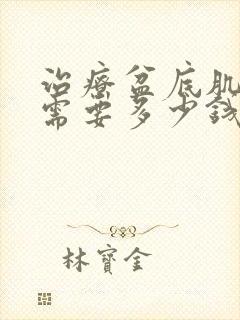 治療盆底肌
需要多少錢
林寶金